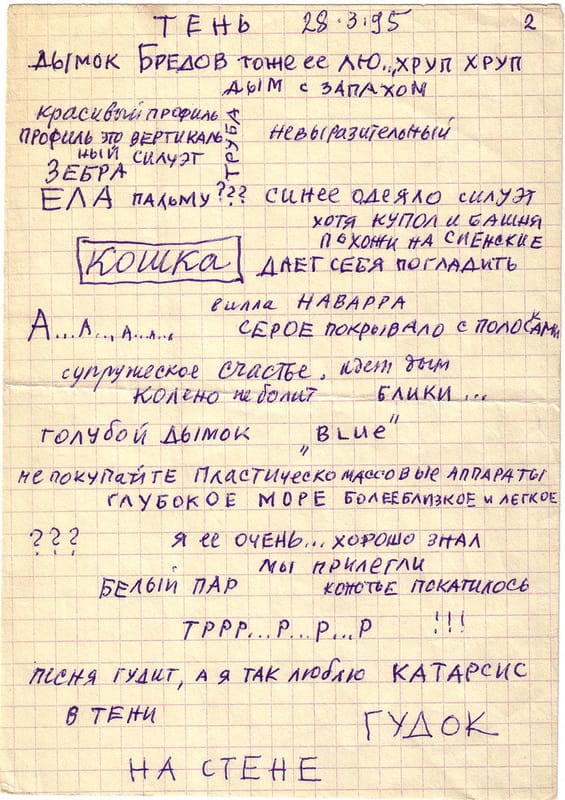 ТЕНЬ 28·3·95 2
ДЫМОК БРЕДОВ ТОЖЕ ЕЕ ЛЮ..., ХРУП ХРУП
ДЫМ С ЗАПАХОМ
красивый профиль
ПРОФИЛЬ ЭТО ВЕРТИКАЛЬ
НЫЙ СИЛУЭТ
ТРУБА
невыразительный
ЗЕБРА
ЕЛА ПАЛЬМУ ??? СИНЕЕ ОДЕЯЛО СИЛУЭТ
ХОТЯ КУПОЛ И БАШНЯ
ПОХОЖИ НА СИЕНСКИЕ
КОШКА ДАЕТ СЕБЯ ПОГЛАДИТЬ
вилла НАВАРРА
А...А..., А...А..., СЕРОЕ ПОКРЫВАЛО С ПОЛОСКАМИ
супружеское счастье, идет дым
КОЛЕНО не болит БЛИКИ ...
ГОЛУБОЙ ДЫМОК „BLUE"
НЕ ПОКУПАЙТЕ ПЛАСТИЧЕСКОМАССОВЫЕ АППАРАТЫ
ГЛУБОКОЕ МОРЕ БОЛЕЕ БЛИЗКОЕ И ЛЕГКОЕ
??? Я ЕЕ ОЧЕНЬ... ХОРОШО ЗНАЛ
МЫ ПРИЛЕГЛИ
БЕЛЫЙ ПАР ПОКАТИЛОСЬ
ТРРР...Р...Р...Р !!!
ПЕСНЯ ГУДИТ, А Я ТАК ЛЮБЛЮ КАТАРСИС
В ТЕНИ
ГУДОК
НА СТЕНЕ